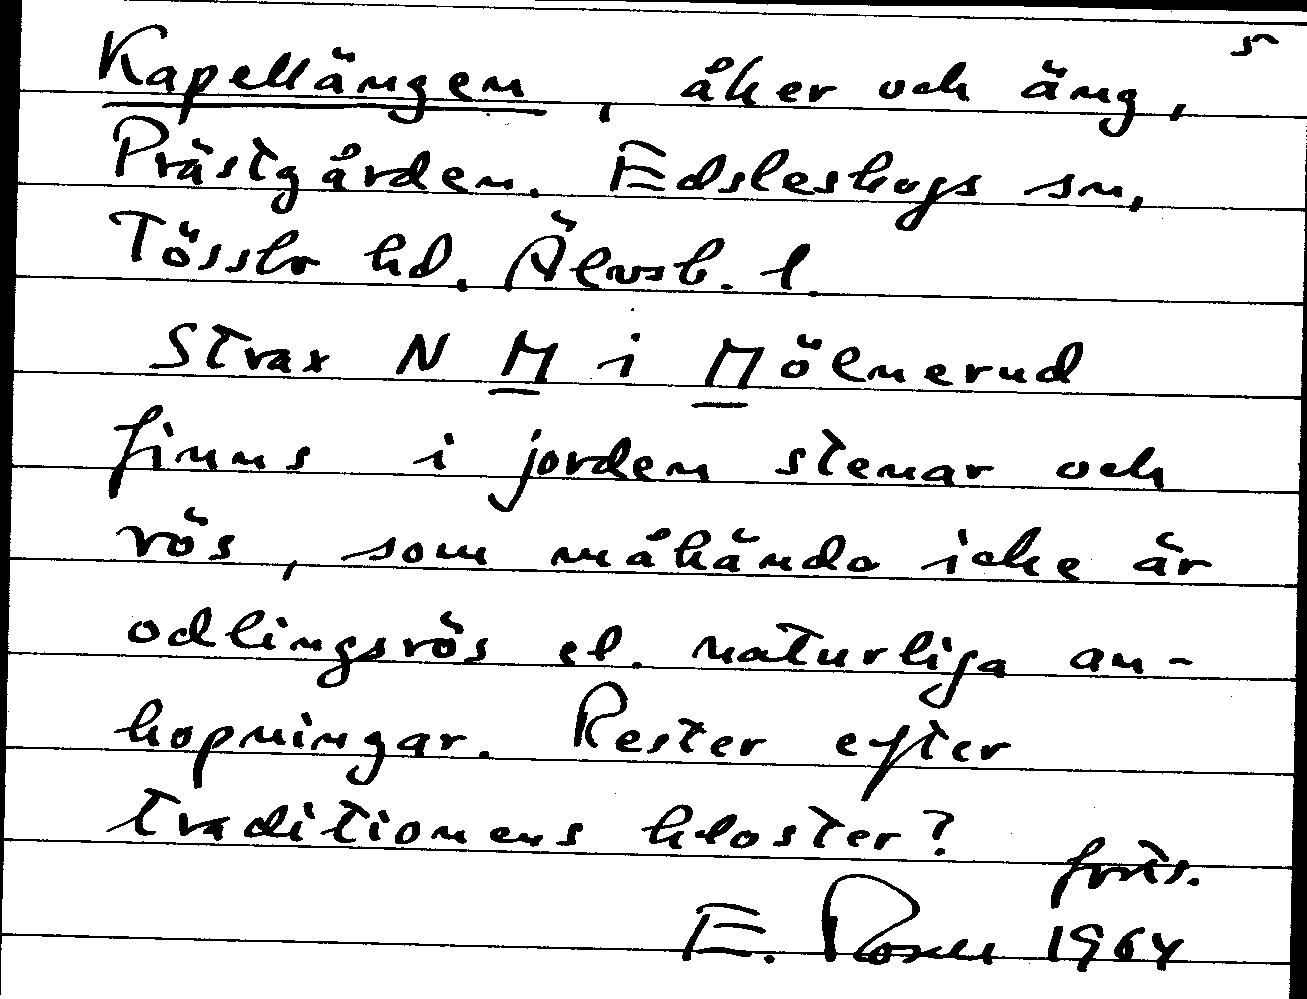 5
Kapellängen, åker och äng,
Prästgården. Edsleskogs sn,
Tössbo hd. Älvsb. l.
Strax N M i Mölnerud
finns i jorden stenar och
rös, som måhända icke är
odlingsrös el. naturliga an-
hopningar. Rester efter
traditionens kloster?
forts.
E. Rosell 1964